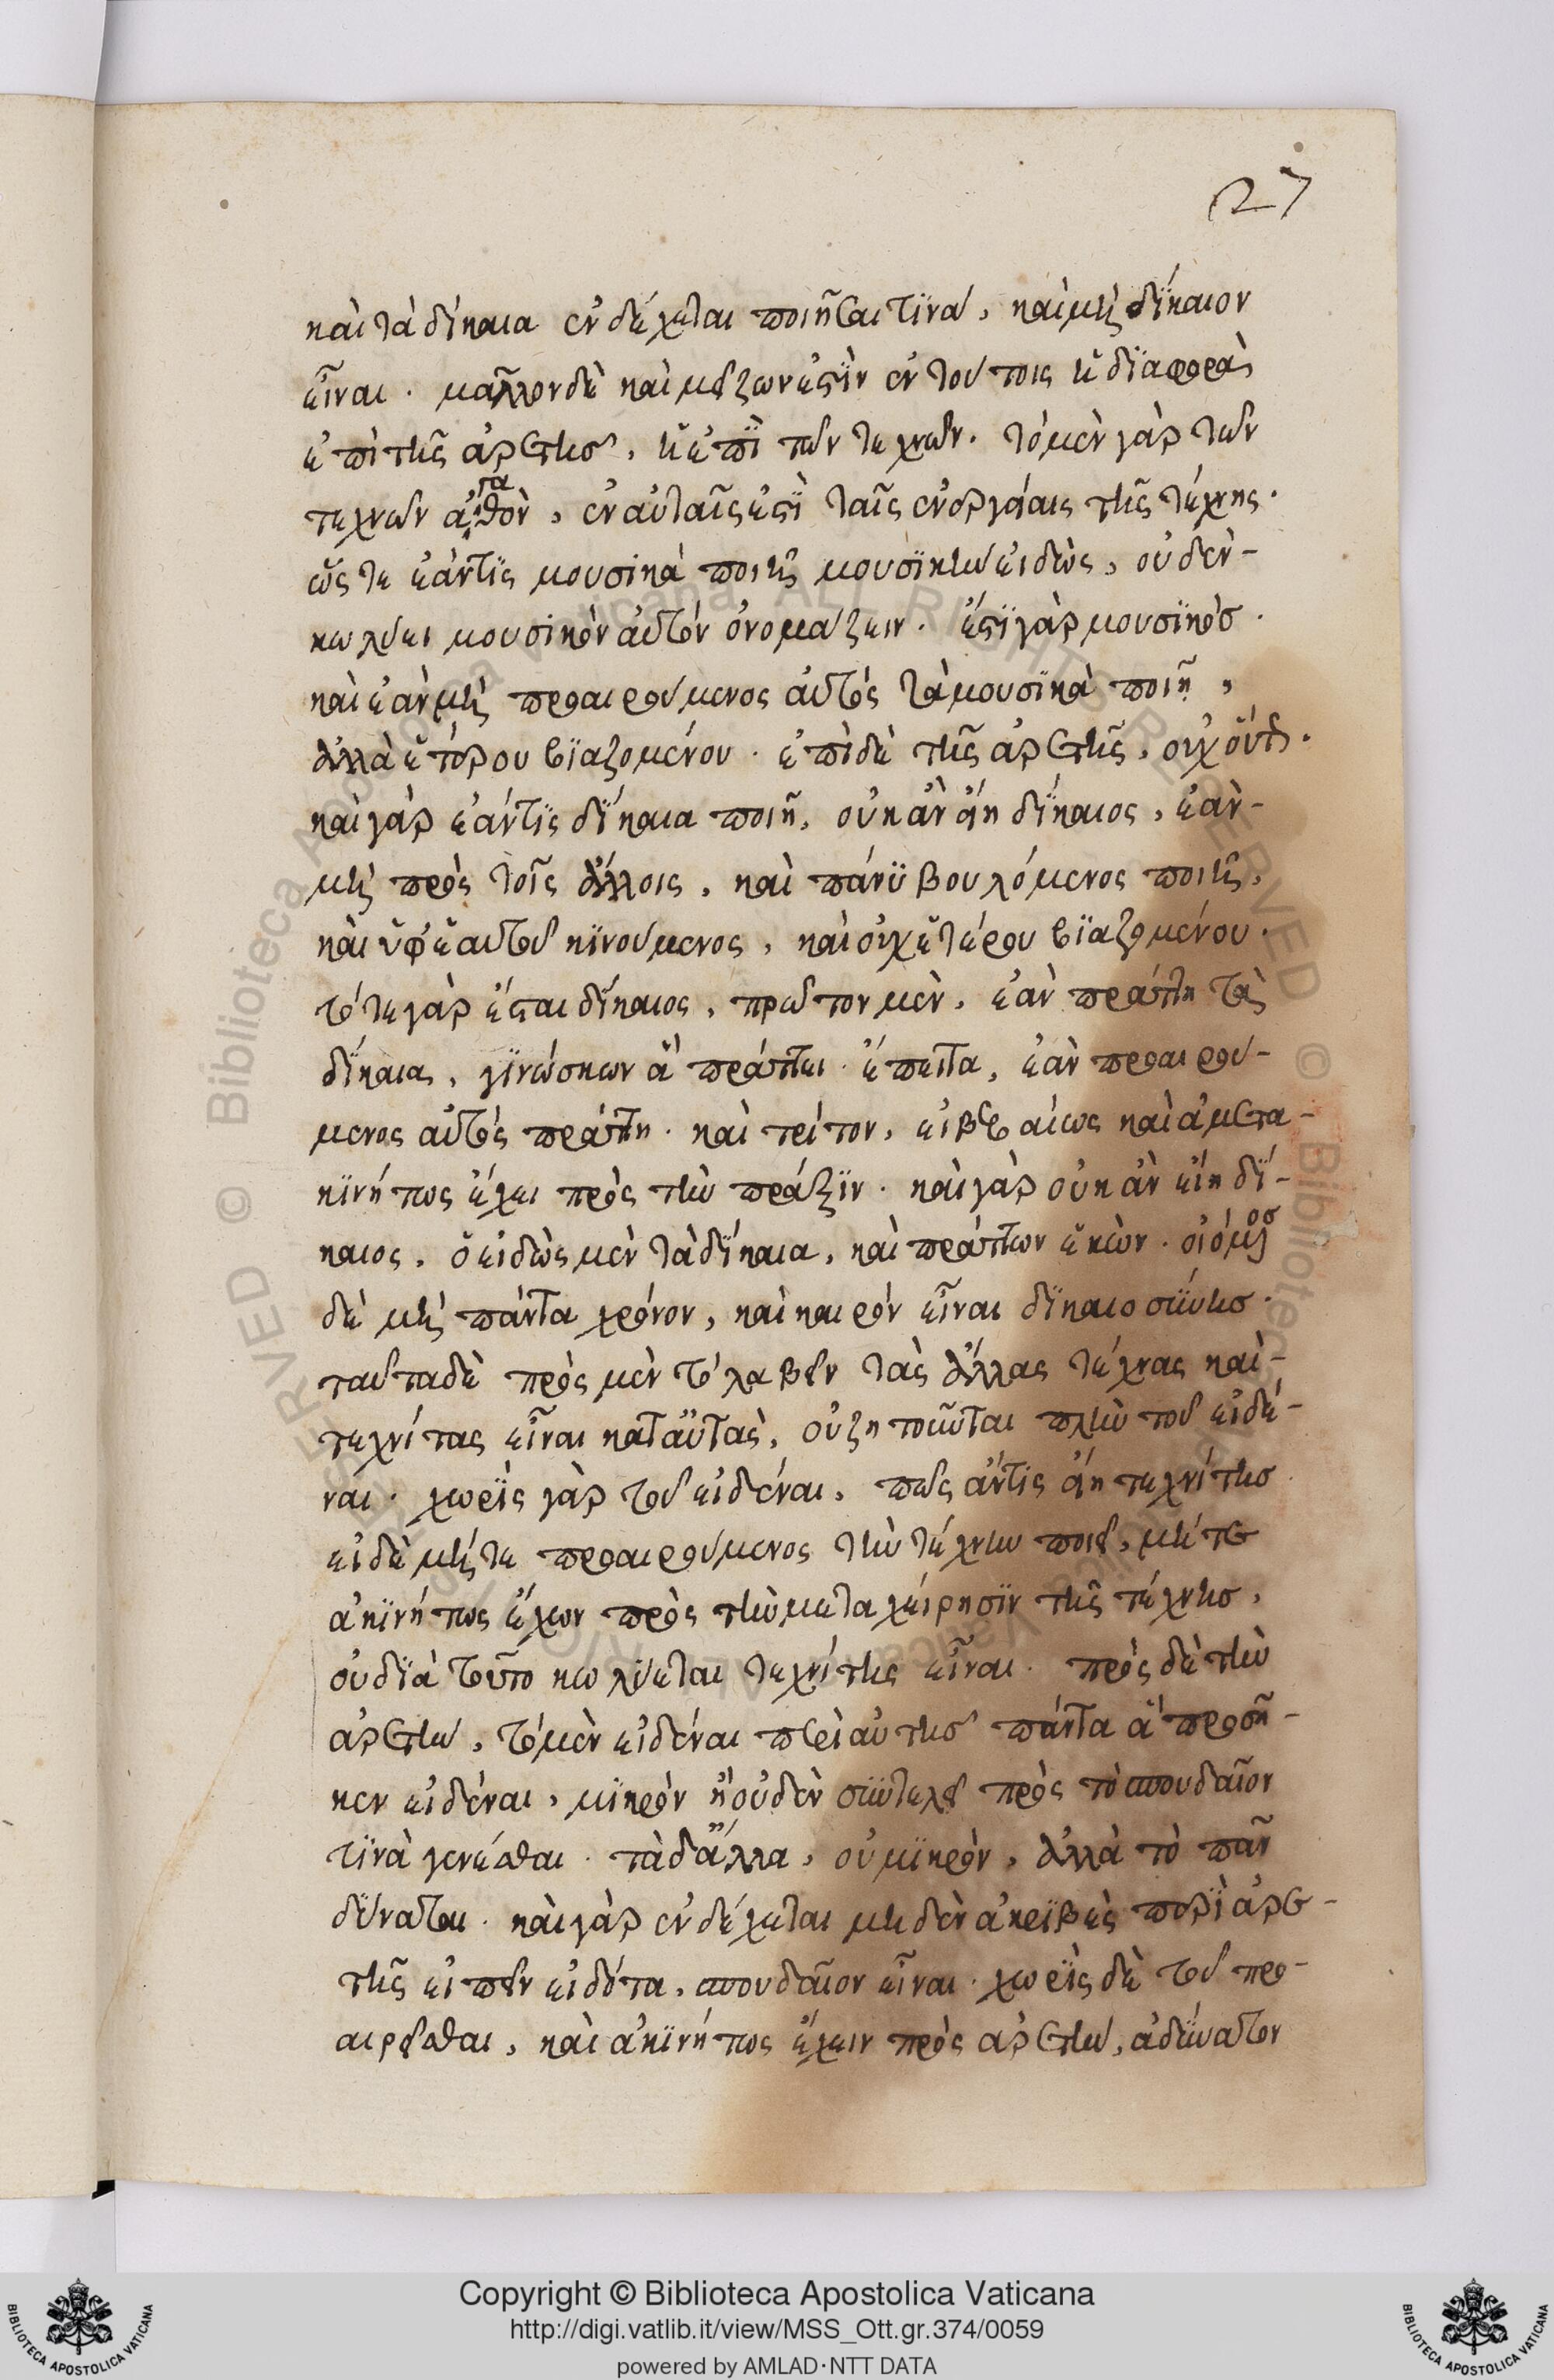 27
καὶ τὰ δίκαια ἐνδέχεται ποιῆσαι τινὰ, καὶ μὴ δίκαιον
εἶναι. μᾶλλον δὲ καὶ μεῖζων ἐστὶν ἐν τούτοις ἡ διαφορὰ
ἐπὶ τῆς ἀρετῆς, ἢ ἐπὶ τῶν τεχνῶν. τὸ μὲν γὰρ τῶν
τεχνῶν ἀγαθὸν, ἐν αὐταῖς ἐστὶ ταῖς ἐνεργείαις τῆς τέχνης.
ὥστε ἐάν τις μουσικὰ ποιῇ μουσικὴν εἰδὼς, οὐδὲν-
κωλύει μουσικὸν αὐτὸν ὀνομάζειν. ἔστι γὰρ μουσικός.
καὶ ἐὰν μὴ προαιρούμενος αὐτὸς τὰ μουσικὰ ποιῇ,
ἀλλὰ ἑτέρου βιαζομένου. ἐπὶ δὲ τῆς ἀρετῆς, οὐχ οὕτως.
καὶ γὰρ ἐάν τις δίκαια ποιῇ, οὐκ ἂν εἴη δίκαιος, ἐὰν-
μὴ πρὸς τοῖς ἄλλοις, καὶ πάνυ βουλόμενος ποιῇ,
καὶ ὑφ' ἑαυτοῦ κινούμενος, καὶ οὐχ ἑτέρου βιαζομένου.
τότε γὰρ ἔσται δίκαιος, πρῶτον μὲν, ἐὰν πράττῃ τὰ
δίκαια, γινώσκων ἃ πράττει. ἔπειτα, ἐὰν προαιρού-
μενος αὐτὸς πράττῃ. καὶ τρίτον, εἰ βεβαίως καὶ ἀμετα-
κινήτως ἔχει πρὸς τὴν πράξιν. καὶ γὰρ οὐκ ἂν εἴη δί-
καιος, ὁ εἰδὼς μὲν τὰ δίκαια, καὶ πράττων ἑκών. οἰόμενος
δὲ μὴ πάντα χρόνον, καὶ καιρὸν εἶναι δικαιοσύνης.
ταῦτα δὲ πρὸς μὲν τὸ λαβεῖν τὰς ἄλλας τέχνας καὶ-
τεχνίτας εἶναι κατ' αὐτὰς, οὐ ζητοῦνται πλὴν τοῦ εἰδέ-
ναι. χωρὶς γὰρ τοῦ εἰδέναι, πῶς ἄν τις εἴη τεχνίτης
εἰ δὲ μήτε προαιρούμενος τὴν τέχνην ποιεῖ, μήτε
ἀκινήτως ἔχων πρὸς τὴν μεταχείρησιν τῆς τέχνης,
οὐ διὰ τοῦτο κωλύεται τεχνίτης εἶναι. πρὸς δὲ τὴν
ἀρετὴν, τὸ μὲν εἰδέναι περὶ αὐτῆς πάντα ἃ προσῆ-
κεν εἰδέναι, μικρὸν ἢ οὐδὲν συντελεῖ πρὸς τὸ σπουδαῖον
τινὰ γενέσθαι. τὰ δ' ἄλλα, οὐ μικρὸν, ἀλλὰ τὸ πᾶν
δύναται. καὶ γὰρ ἐνδέχεται μηδὲν ἀκριβὲς περὶ ἀρε-
τῆς εἰπεῖν εἰδότα, σπουδαῖον εἶναι. χωρὶς δὲ τοῦ προ-
αιρεῖσθαι, καὶ ἀκινήτως ἔχειν πρὸς ἀρετὴν, ἀδύνατον
Copyright © Biblioteca Apostolica Vaticana
http://digi.vatlib.it/view/MSS_Ott.gr.374/0059
powered by AMLAD·NTT DATA